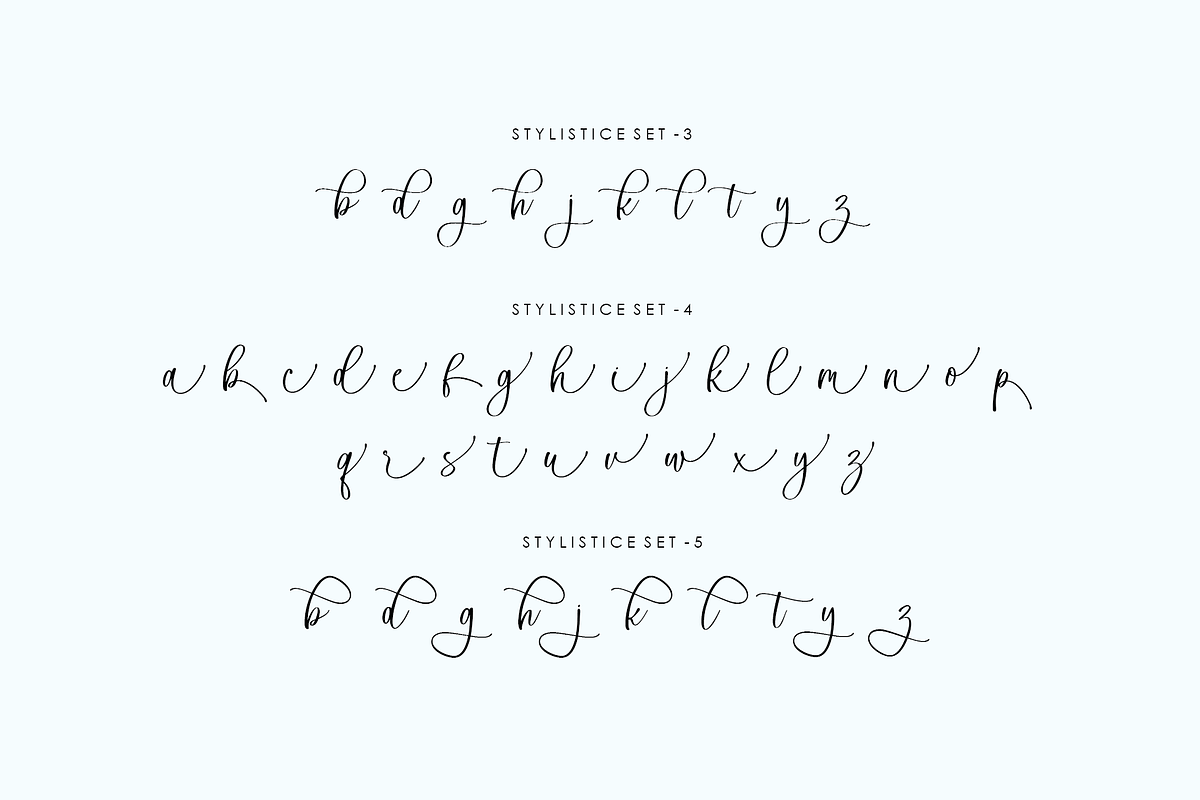 STYLISTICE SET -3
b d g h j k l t y z
STYLISTICE SET -4
a b c d e f g h i j k l m n o p
q r s t u v w x y z
STYLISTICE SET -5
b d g h j k l t y z